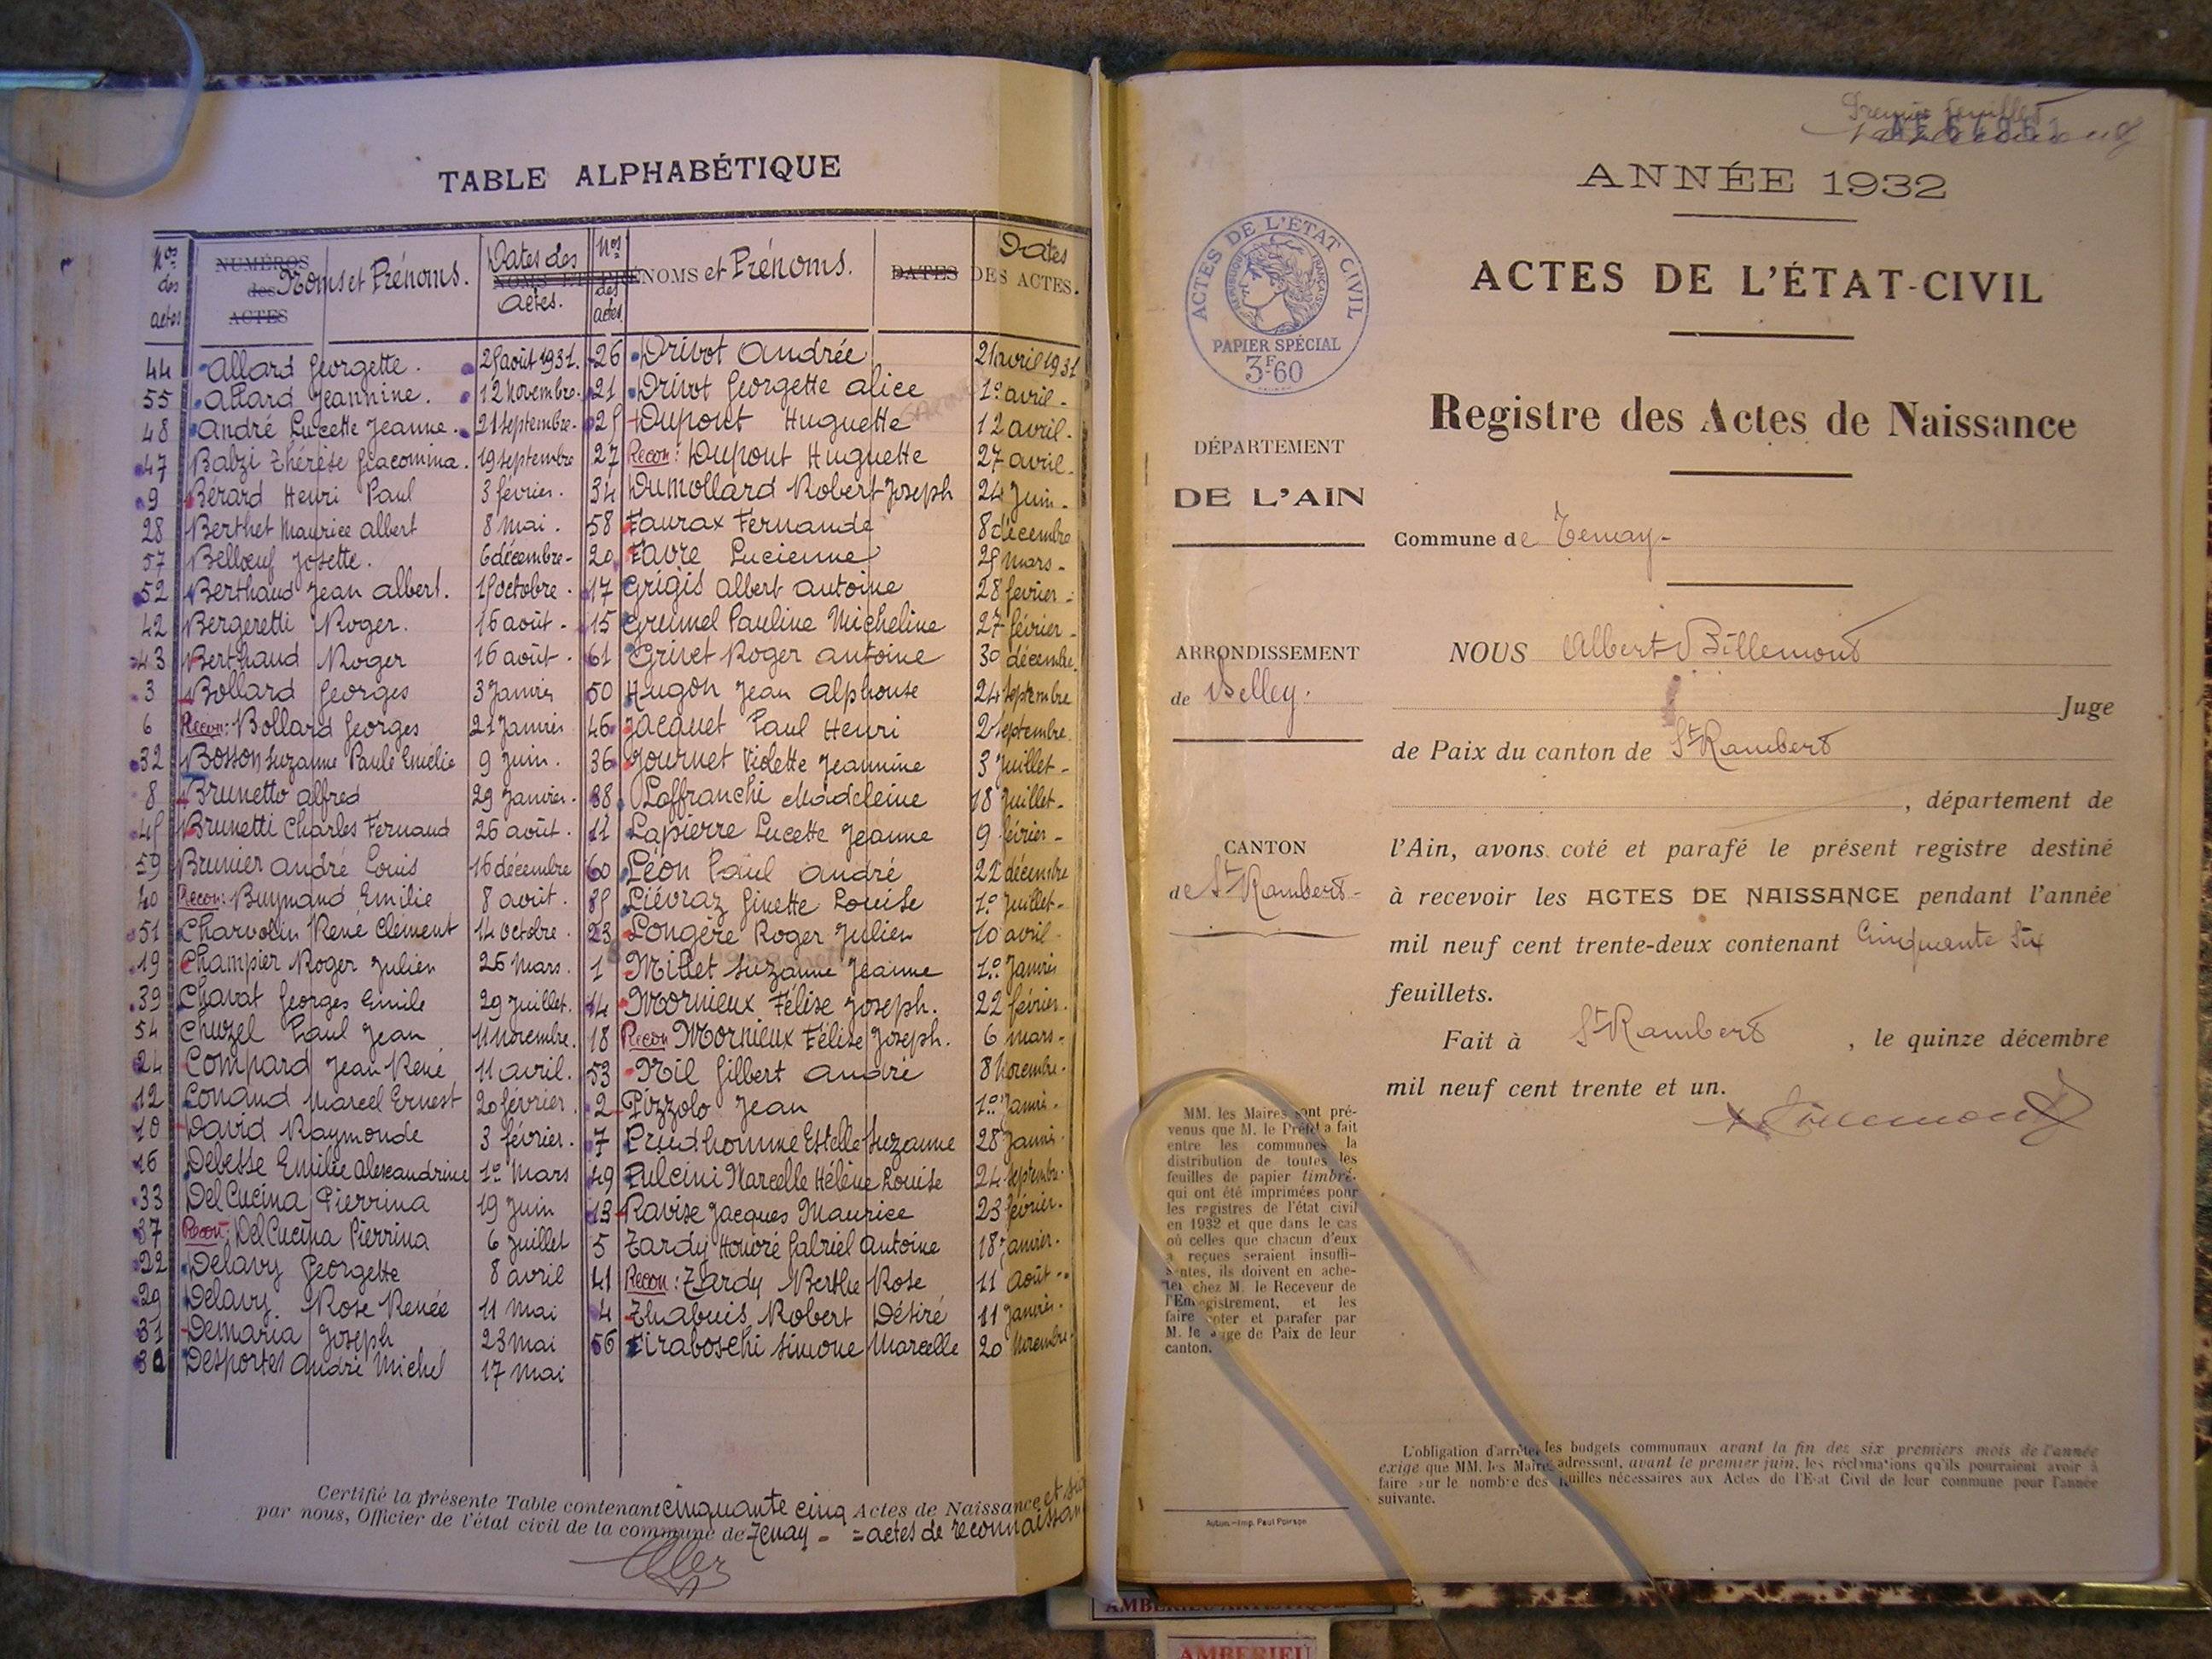 TABLE ALPHABÉTIQUE
Nos des actes
NUMÉROS des ACTES
Noms et Prénoms.
Dates des actes.
NOMS ET PRÉNOMS et Prénoms.
Nos des actes
DATES
Dates DES ACTES.
44 Allard Georgette. 25 août 1931.
55 Allard Jeannine. 12 Novembre.
48 André Lucette Jeanne. 21 septembre.
47 Balzi Thérèse Giacomina. 19 septembre
9 Bérard Henri Paul 3 février.
28 Berthet Maurice Albert 8 Mai.
57 Bellœuf Josette. 6 décembre.
52 Berthaud Jean Albert. 15 octobre.
42 Bergeretti Roger. 16 août.
43 Berthaud Roger 16 août.
3 Bollard Georges 3 Janvier
6 Recon: Bollard Georges 21 Janvier
32 Bosson Suzanne Paule Emélie 9 Juin.
8 Brunetto Alfred 29 Janvier.
45 Brunetti Charles Fernand 26 août.
59 Brunier André Louis 16 décembre
40 Recon: Buynand Emilie 8 août.
51 Charvolin René Clément 14 octobre.
19 Champier Roger Julien 26 Mars.
39 Chavat Georges Emile 29 Juillet.
54 Chuzel Paul Jean 11 Novembre.
24 Compard Jean René 11 avril.
12 Conand Marcel Ernest 20 février.
10 David Raymonde 3 février.
16 Debesse Emilie Alexandrine 1er Mars
33 Del Cucina Pierrina 19 Juin
37 Recon: Del Cucina Pierrina 6 Juillet
22 Delavy Georgette 8 avril
29 Delavy Rose Renée 11 Mai
31 Demaria Joseph 23 Mai
30 Desportes André Michel 17 Mai
26 Drivot Andrée 21 avril 1931
21 Drivot Georgette Alice 1er avril.
25 Dupont Huguette 12 avril.
27 Recon: Dupont Huguette 27 avril.
34 Dumollard Robert Joseph 24 Juin.
58 Faurax Fernande 8 décembre
20 Favre Lucienne 25 Mars.
17 Grigis Albert Antoine 28 février.
15 Grumel Pauline Micheline 27 février.
61 Grivet Roger Antoine 30 décembre.
50 Hugon Jean Alphonse 24 septembre
46 Jacquet Paul Henri 2 septembre.
36 Journet Violette Jeannine 3 Juillet.
38 Laffranchi Madeleine 18 Juillet.
11 Lapierre Lucette Jeanne 9 février.
60 Léon Paul André 22 décembre
35 Liévraz Ginette Louise 1er Juillet.
23 Longère Roger Julien 10 avril.
1 Millet Suzanne Jeanne 1er Janvier
14 Mornieux Félise Joseph. 22 février.
18 Recon Mornieux Félise Joseph. 6 mars.
53 Nil Gilbert André 8 Novembre.
2 Pizzolo Jean 1er Janvier.
7 Prudhomme Estelle Suzanne 28 Janvier.
49 Pulcini Marcelle Hélène Louise 24 septembre.
13 Ravise Jacques Maurice 23 février.
5 Tardy Honoré Gabriel Antoine 18 Janvier.
41 Recon: Tardy Berthe Rose 11 Août
4 Thabuis Robert Désiré 11 Janvier.
56 Tiraboschi Simone Marcelle 20 Novembre
Certifié la présente Table contenant cinquante cinq Actes de Naissance et six
par nous, Officier de l'état civil de la commune de Tenay - = actes de reconnaissan
Premier feuillet
ANNÉE 1932
ACTES DE L'ÉTAT-CIVIL
Registre des Actes de Naissance
ACTES DE L'ÉTAT CIVIL
RÉPUBLIQUE FRANÇAISE
PAPIER SPÉCIAL
3F60
DÉPARTEMENT
DE L'AIN
Commune de Tenay-
ARRONDISSEMENT
de Belley.
CANTON
de St Rambert-
NOUS Albert Billemont
Juge
de Paix du canton de St Rambert
, département de
l'Ain, avons coté et parafé le présent registre destiné
à recevoir les ACTES DE NAISSANCE pendant l'année
mil neuf cent trente-deux contenant Cinquante Six
feuillets.
Fait à St Rambert, le quinze décembre
mil neuf cent trente et un.
MM. les Maires sont pré-
venus que M. le Préfet a fait
entre les communes la
distribution de toutes les
feuilles de papier timbré
qui ont été imprimées pour
les registres de l'état civil
en 1932 et que dans le cas
où celles que chacun d'eux
a reçues seraient insuffi-
santes, ils doivent en ache-
ter chez M. le Receveur de
l'Enregistrement, et les
faire coter et parafer par
M. le Juge de Paix de leur
canton.
L'obligation d'arrêter les budgets communaux avant la fin des six premiers mois de l'année
exige que MM. les Maires adressent, avant le premier juin, les réclamations qu'ils pourraient avoir à
faire sur le nombre des feuilles nécessaires aux Actes de l'Etat Civil de leur commune pour l'année
suivante.
Autun.—Imp. Paul Poirson
AMBERIEU ARTISTIQUE
AMBERIEU